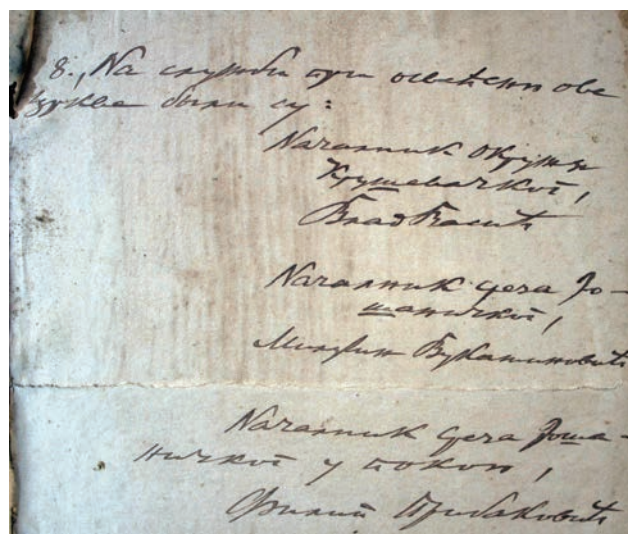 8., На служби при освећењи ове
цркве были су:
Началник Округа
Крушевачкогъ,
Влад
Началник среза Јо-
шаничкогъ,
Милутин Вукашиновићъ
Началник среза Јоша-
ничкогъ у покою,
Филип Прибаковићъ